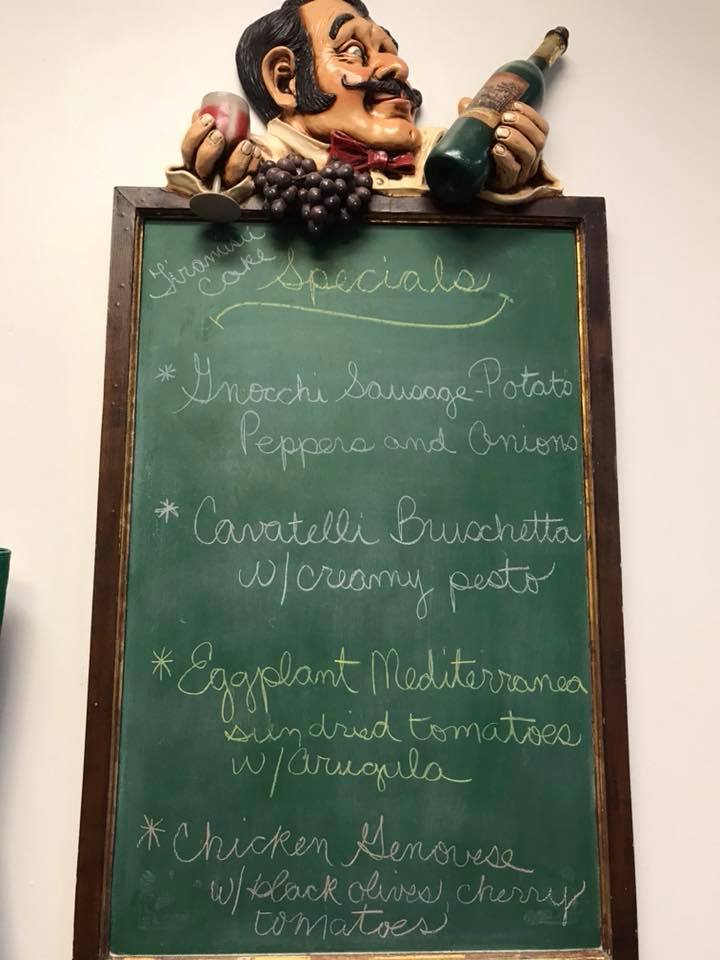 Tiramisu
cake
Specials
* Gnocchi Sausage-Potato
Peppers and Onions
* Cavatelli Bruschetta
w/creamy pesto
* Eggplant Mediterranea
sundried tomatoes
w/arugula
* Chicken Genovese
w/black olives, cherry
tomatoes